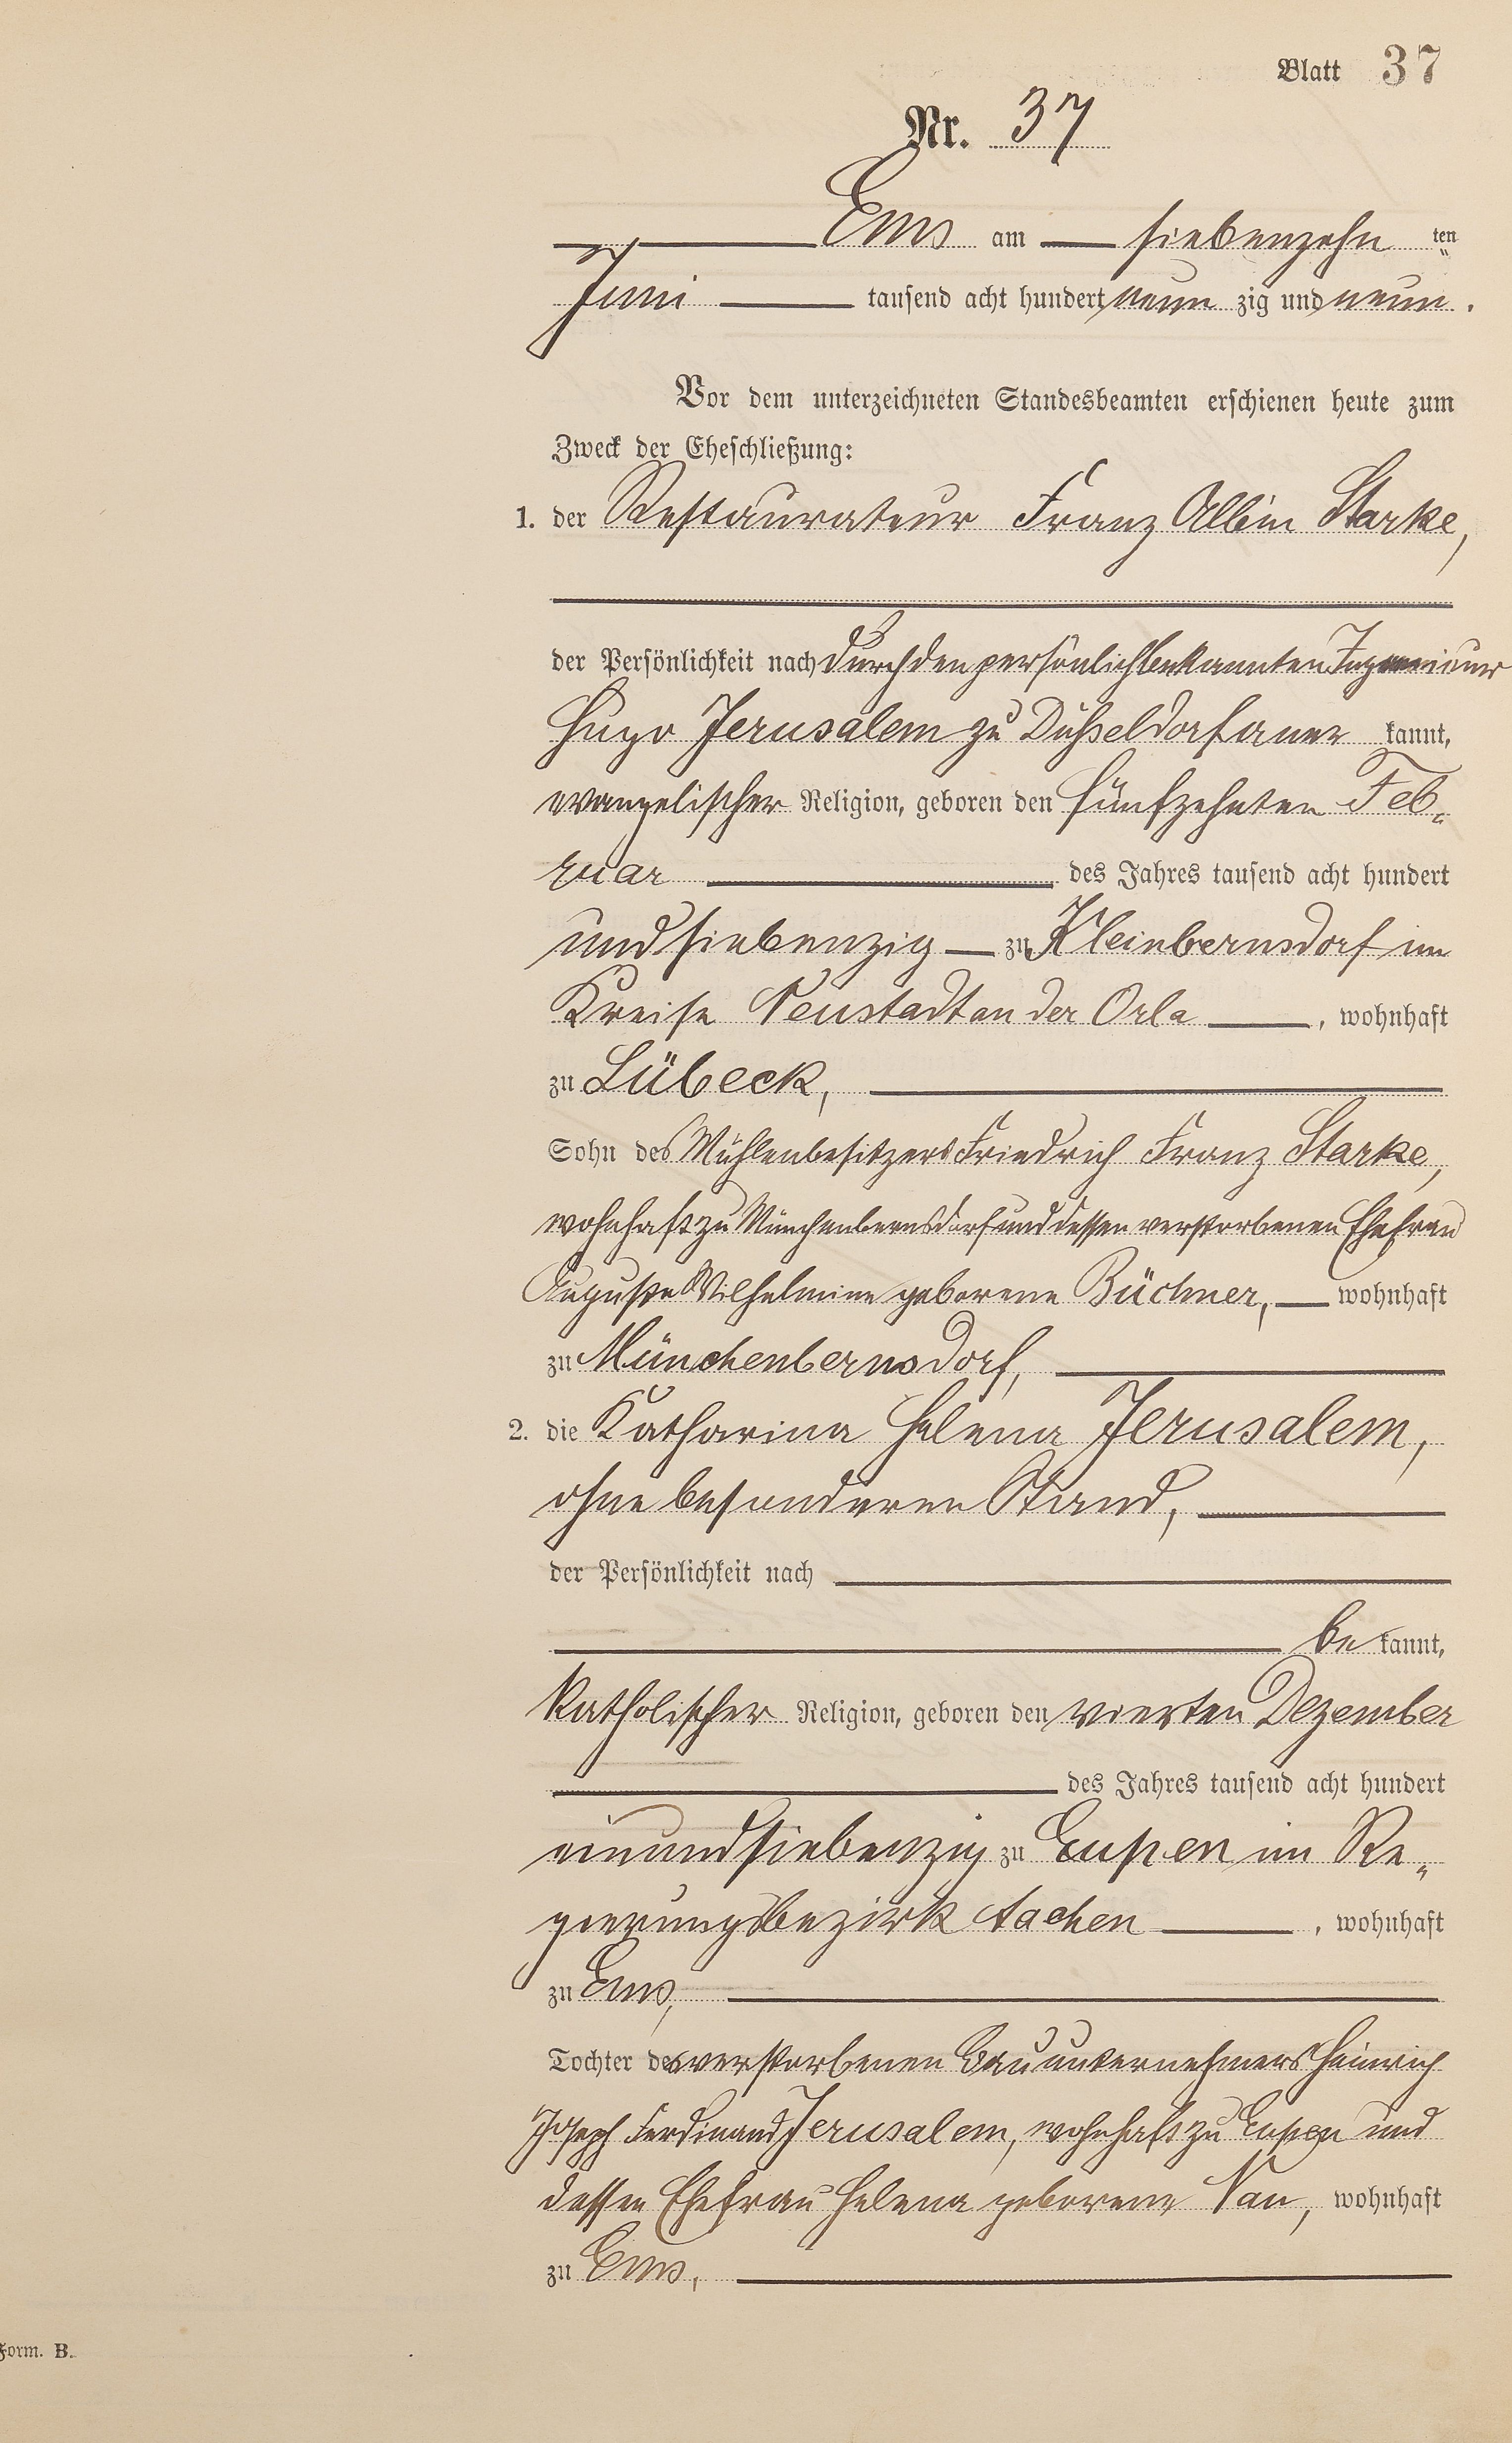 Blatt 37
Nr. 37
Ems am siebenzehn ten
Juni tausend acht hundert neun zig und neun.
Vor dem unterzeichneten Standesbeamten erschienen heute zum
Zweck der Eheschließung:
1. der Restaurateur Franz Albin Starke,
der Persönlichkeit nach durch den persönlich bekannten Ingenieur
Hugo Jerusalem zu Düsseldorf aner kannt,
evangelischer Religion, geboren den fünfzehnten Feb-
ruar des Jahres tausend acht hundert
und siebenzig zu Kleinbernsdorf im
Kreise Neustadt an der Orla, wohnhaft
zu Lübeck,
Sohn des Mühlenbesitzers Friedrich Franz Starke,
wohnhaft zu Münchenbernsdorf und dessen verstorbenen Ehefrau
Auguste Wilhelmine geborene Büchner, wohnhaft
zu Münchenbernsdorf,
2. die Katharina Helena Jerusalem,
ohne besonderen Stand,
der Persönlichkeit nach
be kannt,
katholischer Religion, geboren den vierten Dezember
des Jahres tausend acht hundert
einundsiebenzig zu Eupen im Re-
gierungsbezirk Aachen, wohnhaft
zu Ems,
Tochter des verstorbenen Bauunternehmers Heinrich
Joseph Ferdinand Jerusalem, wohnhaft zu Eupen und
dessen Ehefrau Helena geborene Nau, wohnhaft
zu Ems,
Form. B.